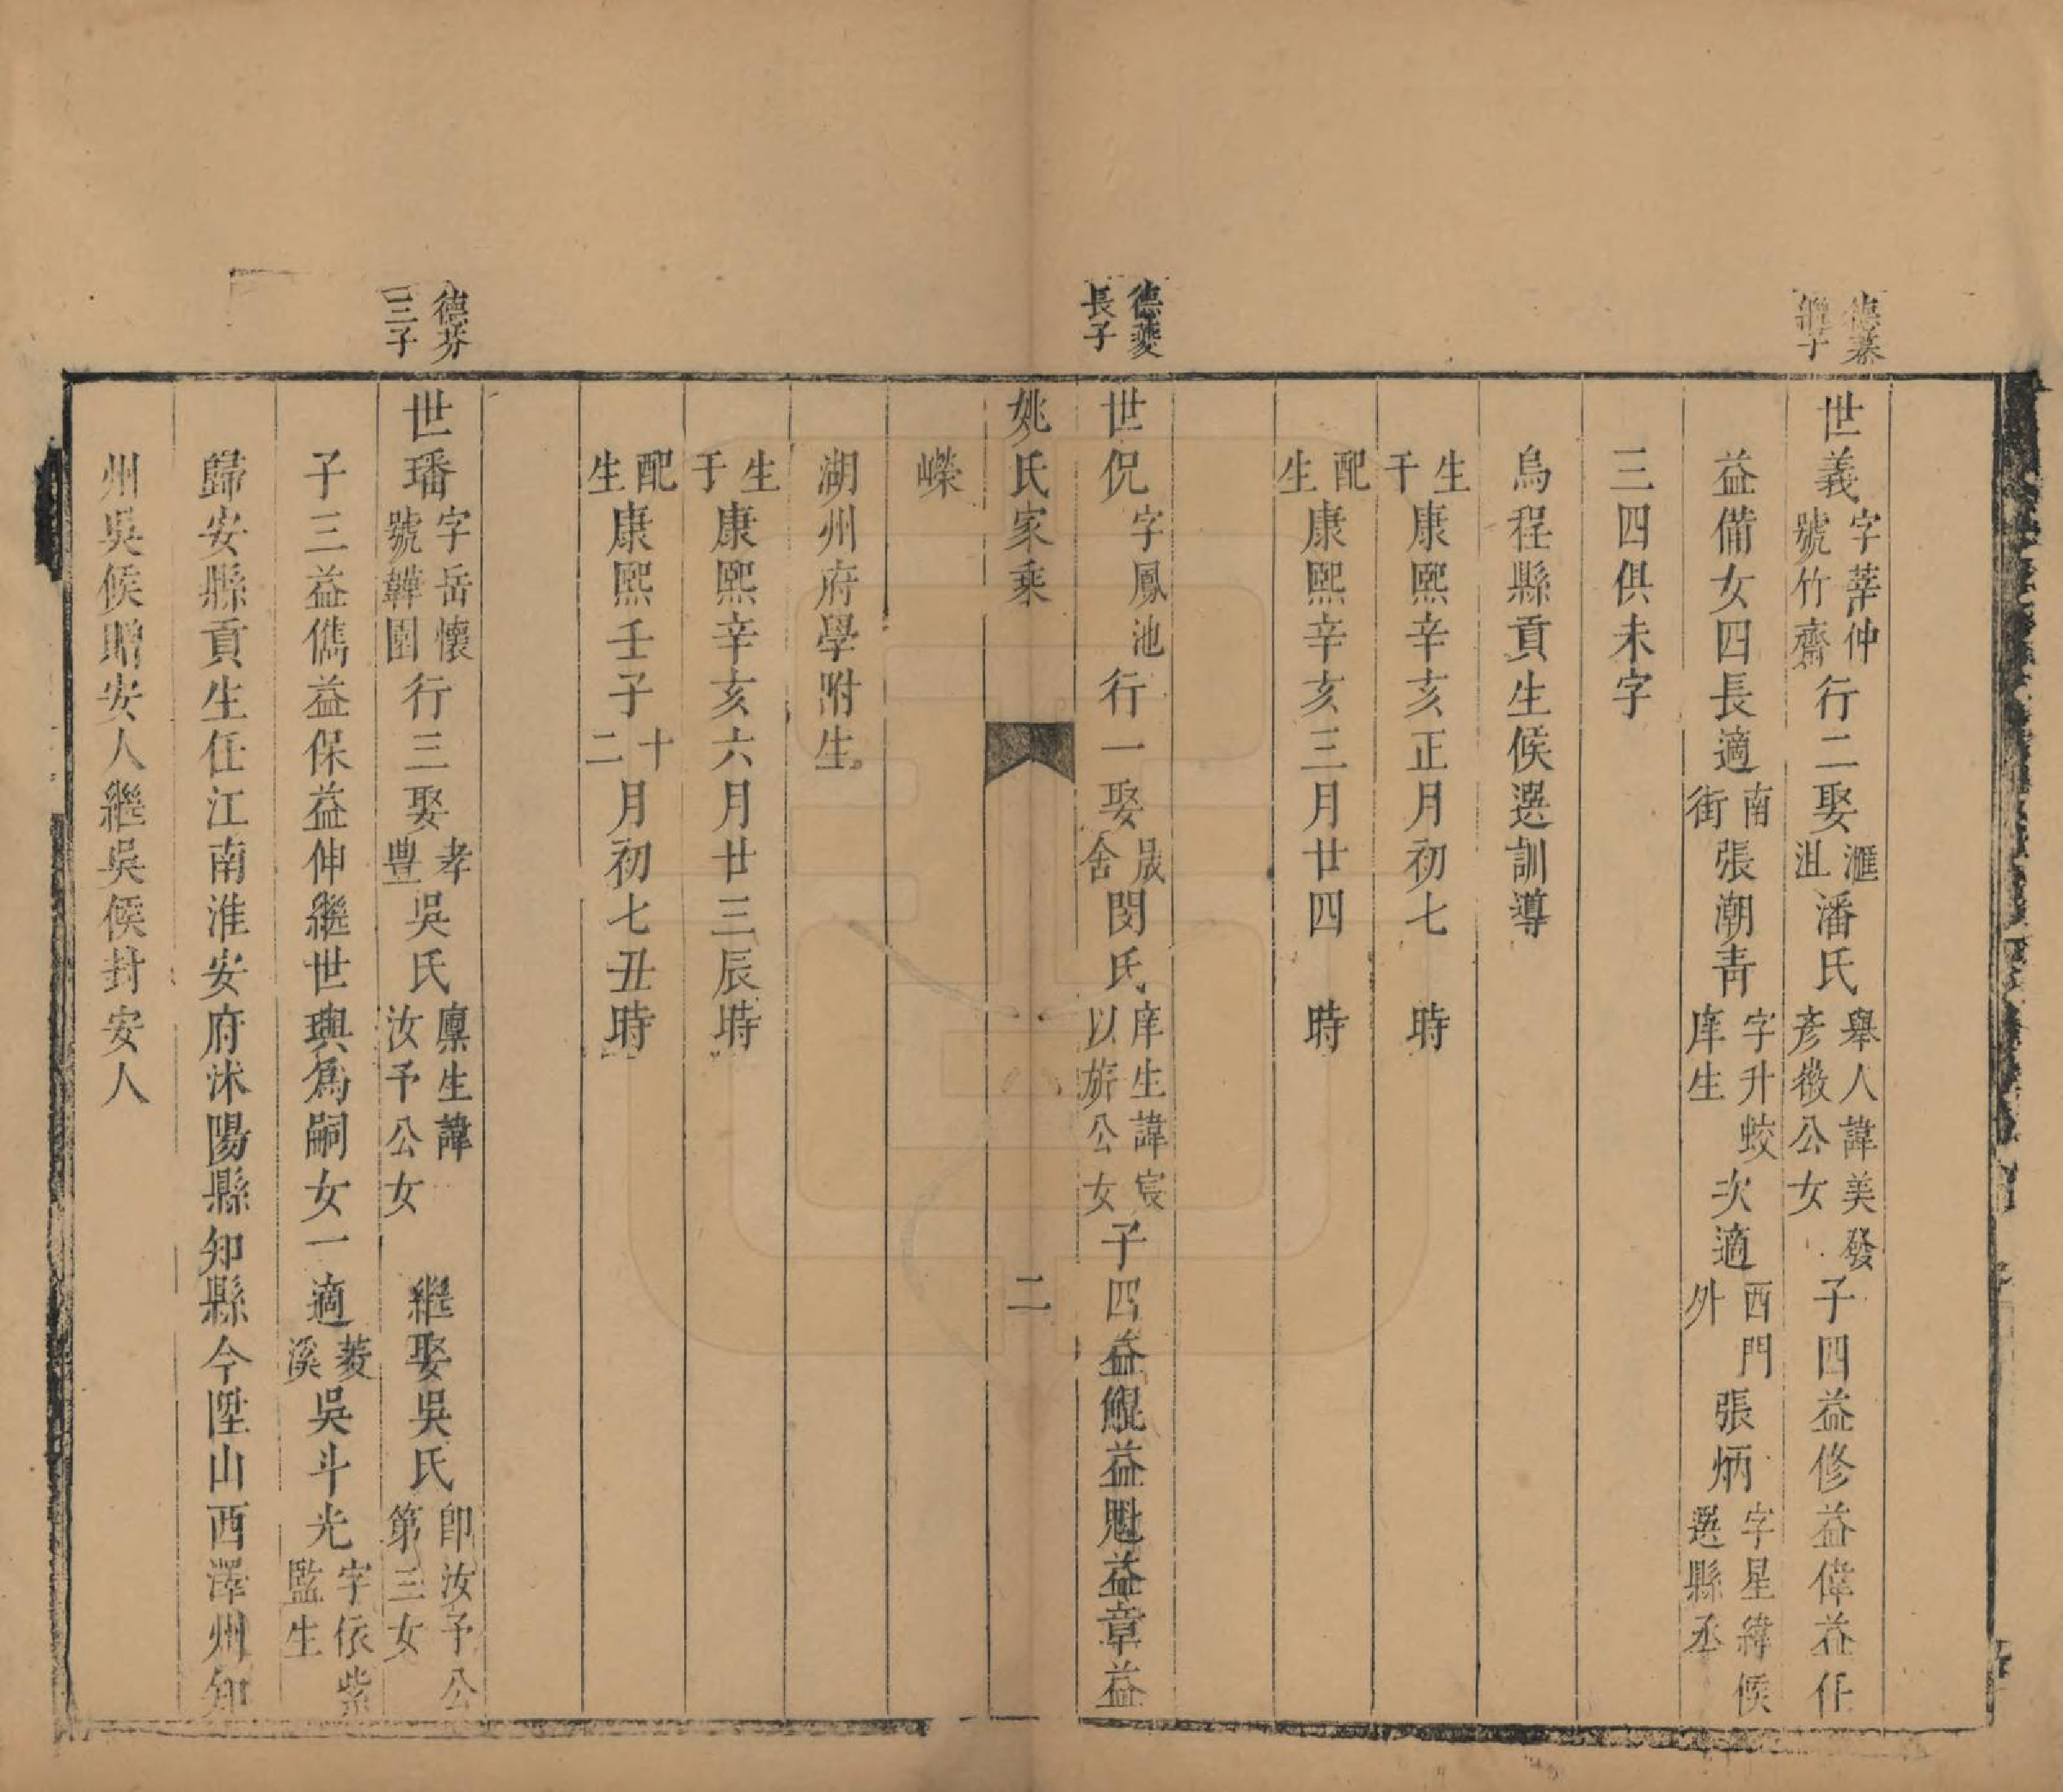 德棻嗣子
世義字莘仲號竹齋行二娶滙沮潘氏舉人諱美發彥徵公女子四益修益偉益任
益備女四長適南街張潮青字升蛟庠生次適西門外張炳字星緯候選縣丞
三四俱未字
烏程縣貢生候選訓導
生于康熙辛亥正月初七　時
配生康熙辛亥三月廿四　時
德夔長子
世侃字鳳池行一娶晟舍閔氏庠生諱宸以旂公女子四益鯤益魁益章益
姚氏家乘　二
嶸
湖州府學附生
生于康熙辛亥六月廿三辰時
配生康熙壬子十二月初七丑時
德芬三子
世璠字岳懷號韡園行三娶孝豊吳氏廪生諱汝予公女　繼娶吳氏即汝予公第三女
子三益儁益保益伸繼世輿爲嗣女一適菱溪吳斗光字依紫監生
歸安縣貢生任江南淮安府沭陽縣知縣今陞山西澤州知
州吳候贈安人繼吳候封安人